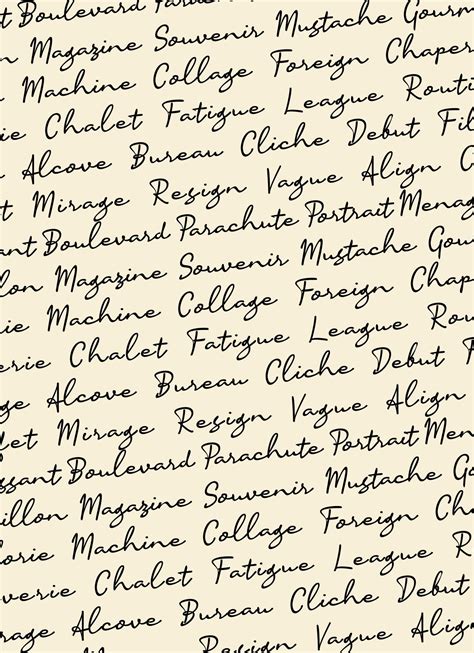 Boulevard
Magazine Souvenir Mustache Gourm
Machine Collage Foreign Chaper
rie Chalet Fatigue League Routi
Alcove Bureau Cliche Debut Fil
et Mirage Resign Vague Align
sant Boulevard Parachute Portrait Menag
lon Magazine Souvenir Mustache Gour
rie Machine Collage Foreign Chape
erie Chalet Fatigue League Rou
ge Alcove Bureau Cliche Debut
let Mirage Resign Vague Align
ssant Boulevard Parachute Portrait Mena
illon Magazine Souvenir Mustache Go
orie Machine Collage Foreign Cha
verie Chalet Fatigue League R
rage Alcove Bureau Cliche Debut
Mirage Resign Vague Align